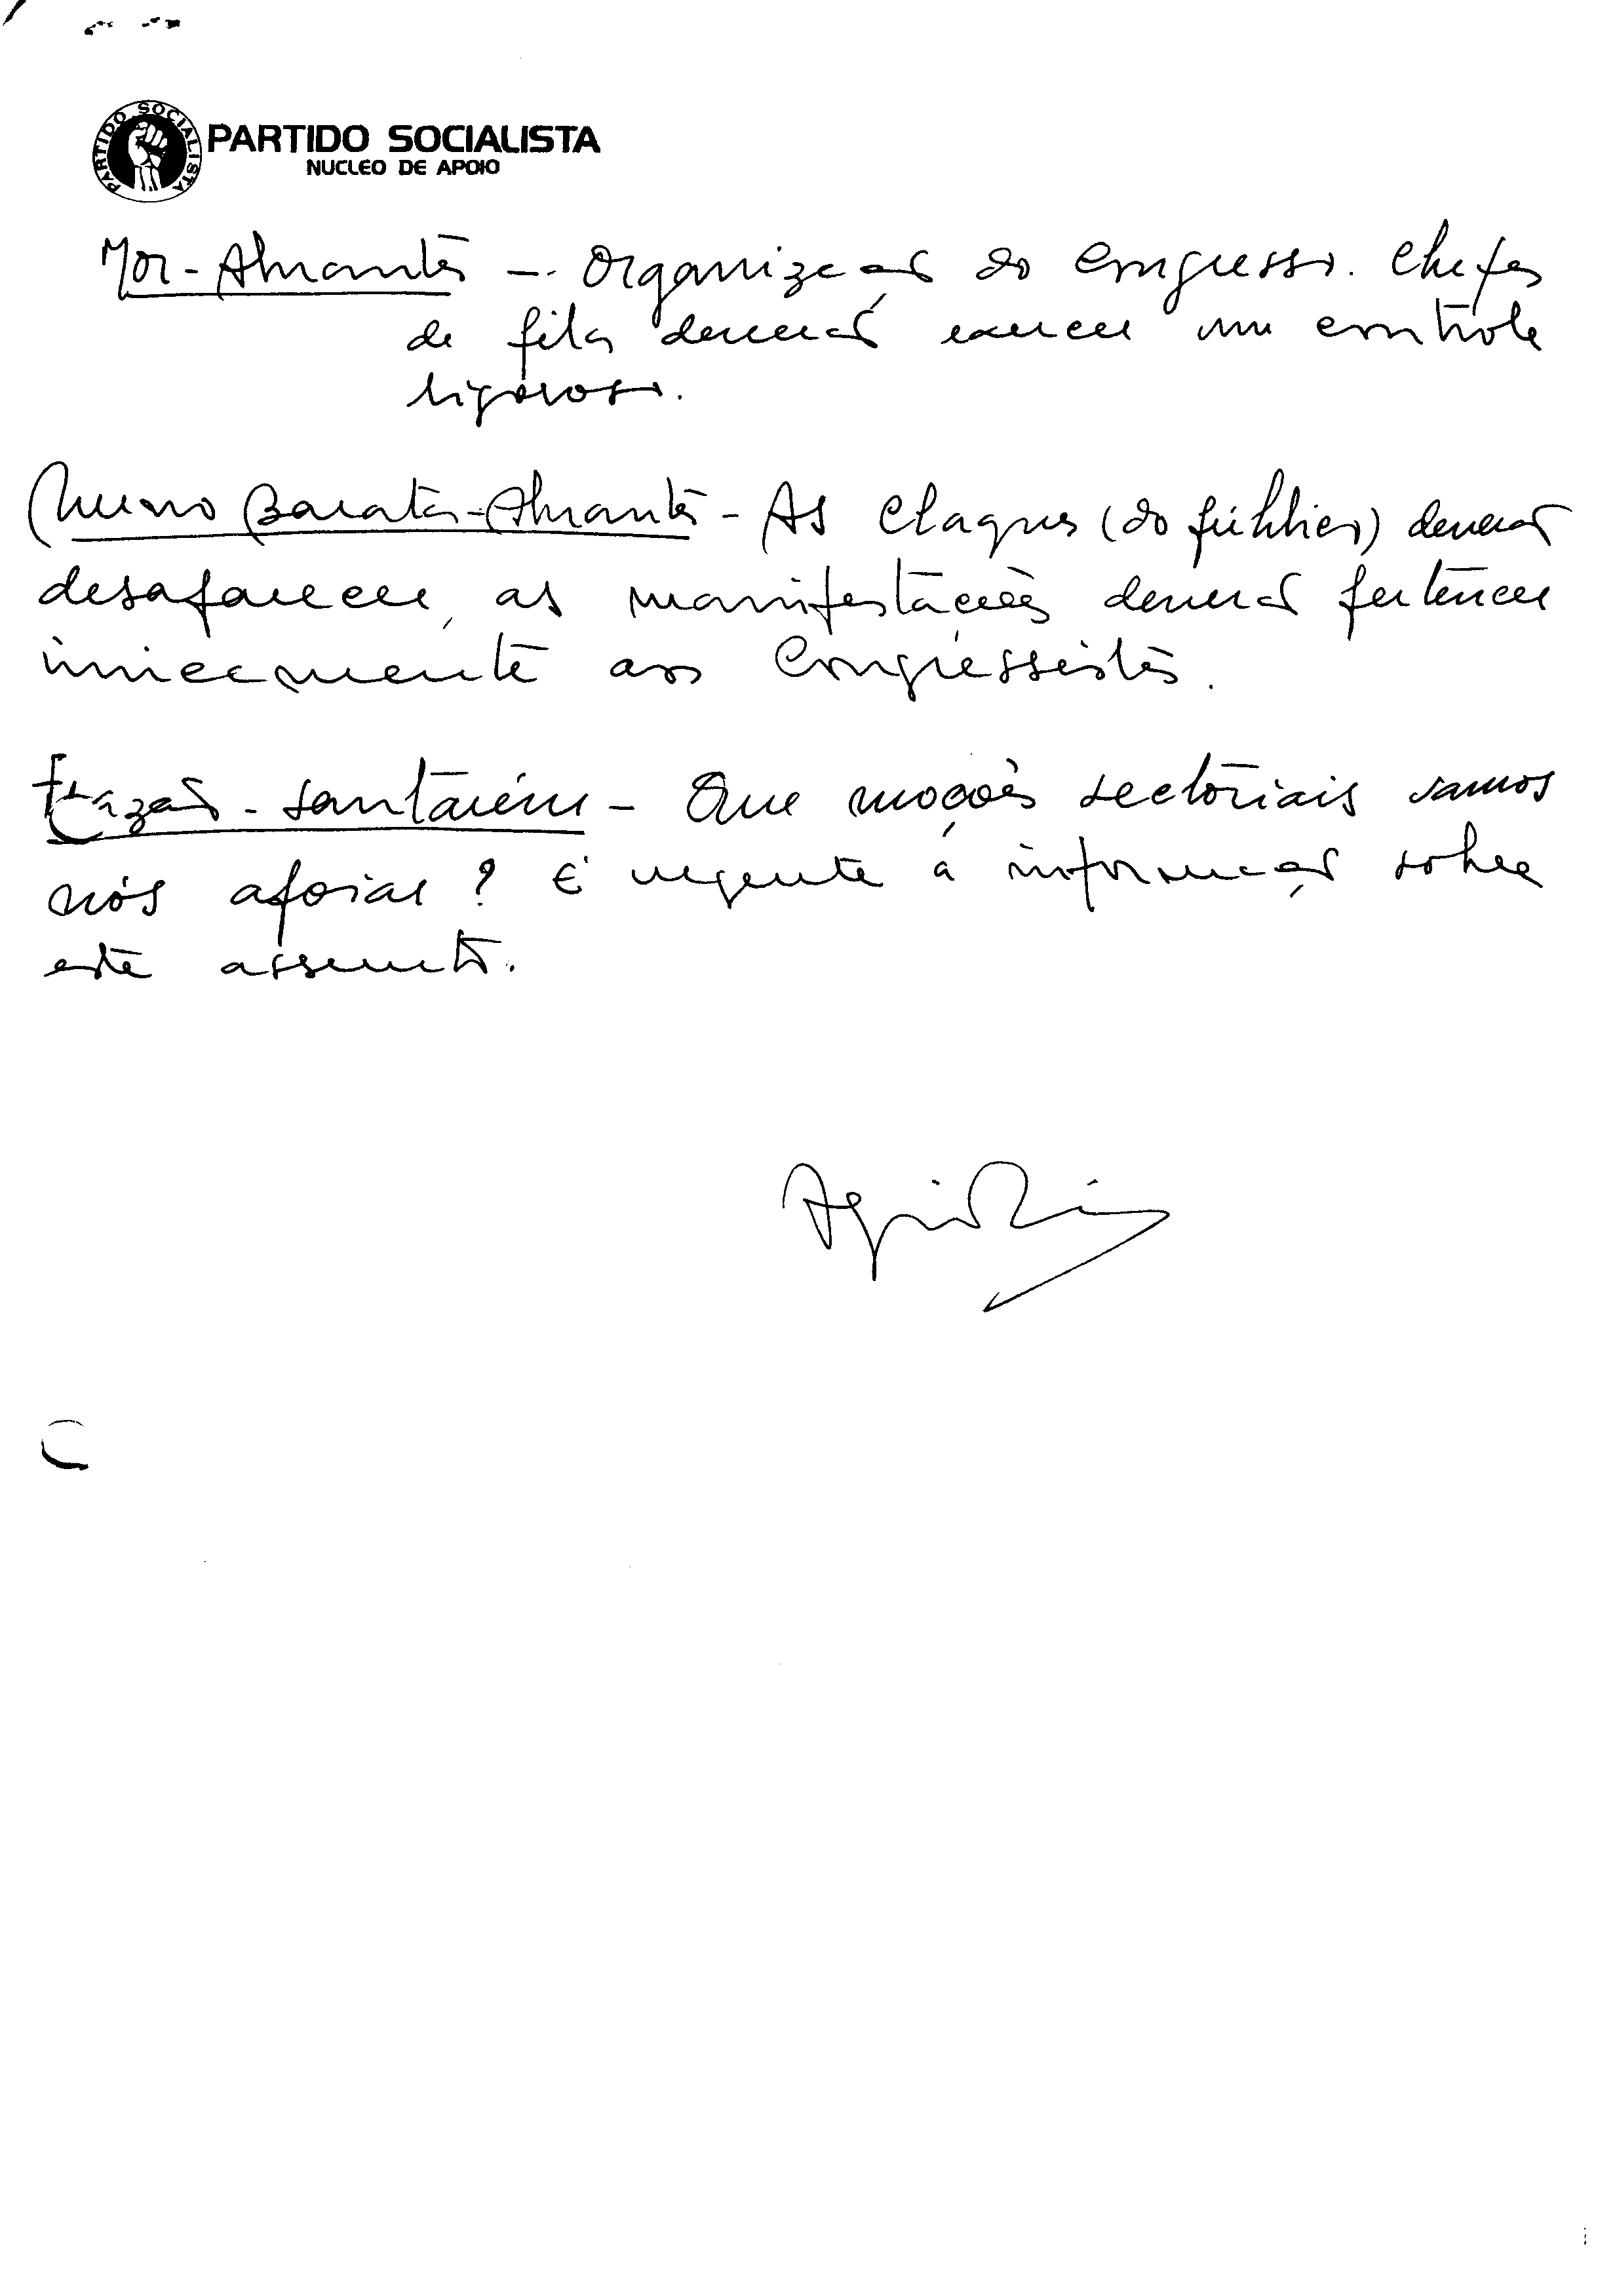 PARTIDO SOCIALISTA
PARTIDO SOCIALISTA
NUCLEO DE APOIO
Mor - Abrantes - Organização do Congresso. Chefes
de fila deverão exercer um contrôle
rigoroso.
Nuno Barata - Abrantes - As claques (do público) deverão
desaparecer, as manifestações deverão pertencer
únicamente aos Congressistas.
Frazão - Santarém - Que moções sectoriais vamos
nós apoiar? É urgente a informação sobre
este assunto.